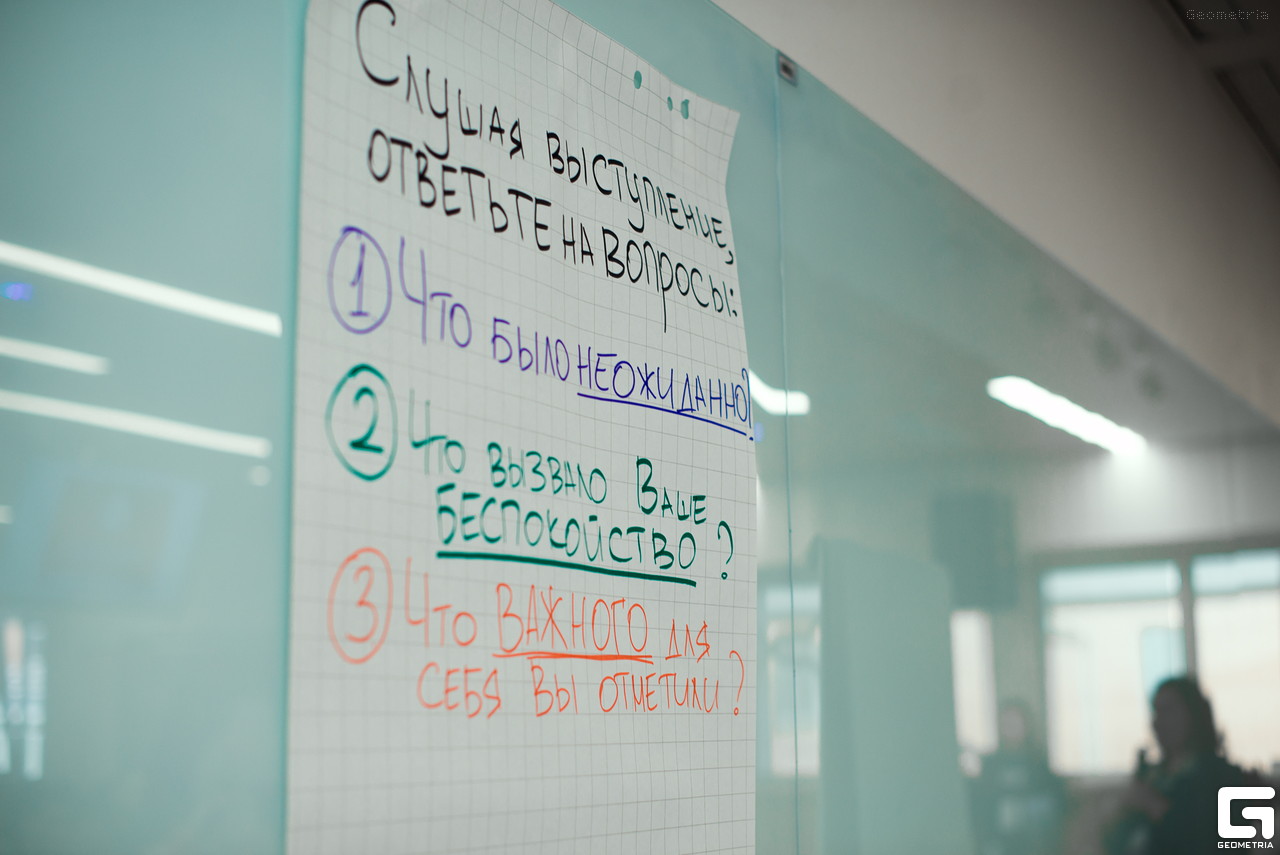 Geometria
Слушая выступление,
ответьте на вопросы:
1 Что было неожиданно?
2 Что вызвало Ваше
беспокойство?
3 Что важного для
себя вы отметили?
G
GEOMETRIA